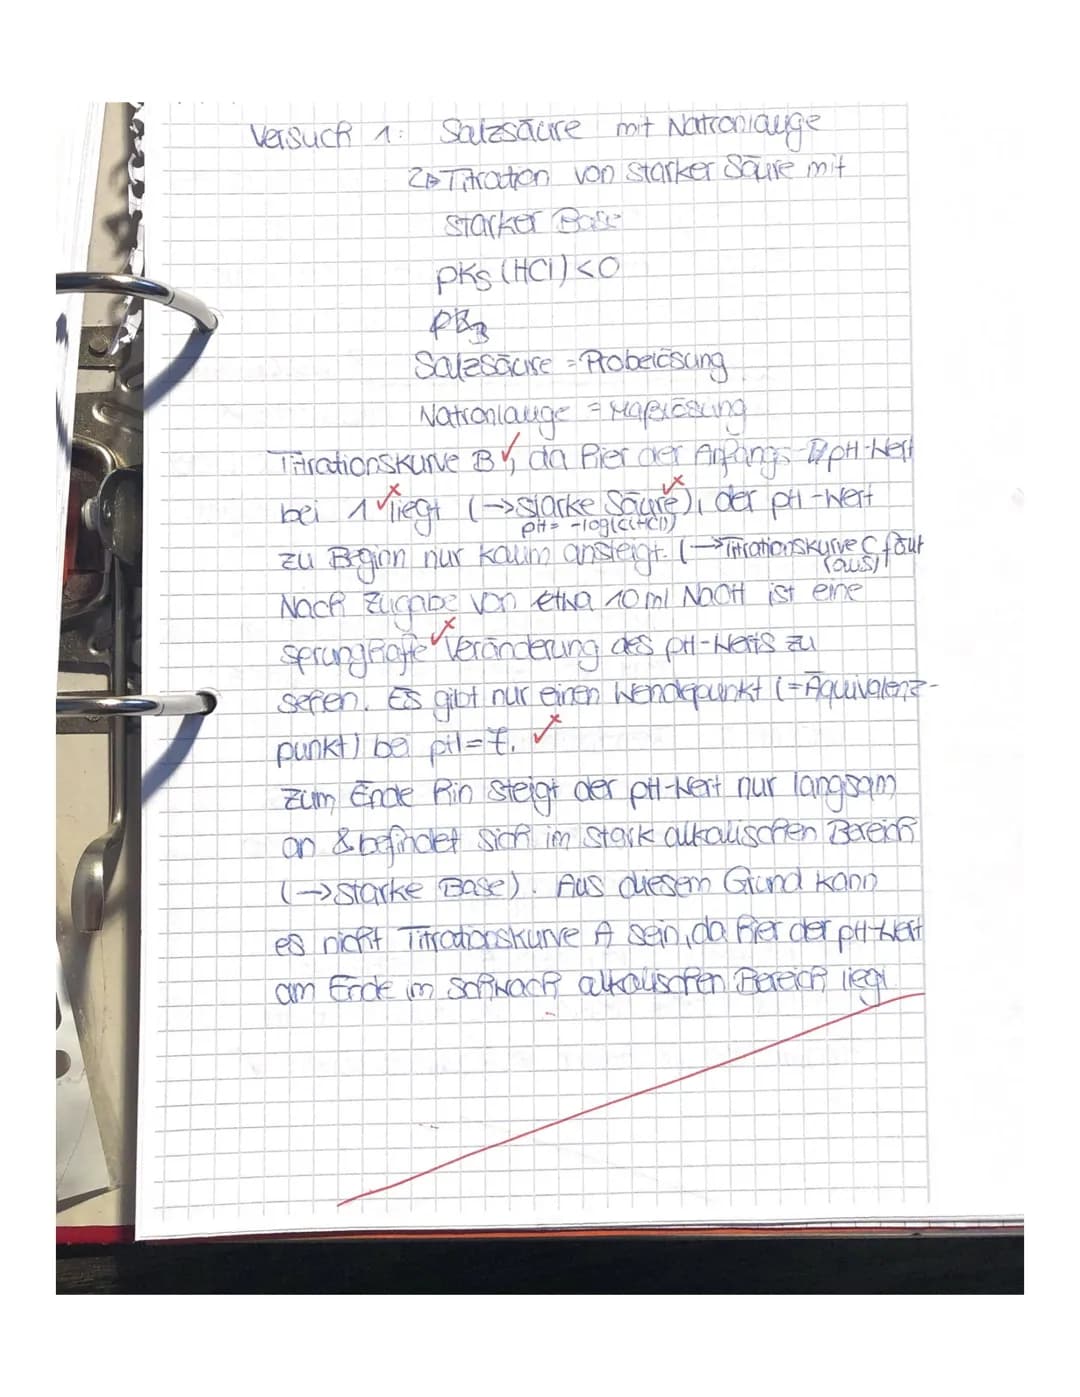 Versuch 1: Salzsäure mit Natronlauge
Titration von starker Säure mit
starker Base
pKs (HCl) < 0
Salzsäure = Probelösung
Natronlauge = Maßlösung
Titrationskurve B, da hier der Anfangs-pH-Wert
bei 1 liegt (→ starke Säure), der pH-Wert
pH = -log(c(HCl))
zu Beginn nur kaum ansteigt. (→ Titrationskurve C fällt
raus)
Nach Zugabe von etwa 10 ml NaOH ist eine
sprunghafte Veränderung des pH-Werts zu
sehen. Es gibt nur einen Wendepunkt (= Äquivalenz-
punkt) bei pH = 7.
Zum Ende hin steigt der pH-Wert nur langsam
an & befindet sich im stark alkalischen Bereich
(→ starke Base). Aus diesem Grund kann
es nicht Titrationskurve A sein, da hier der pH-Wert
am Ende im schwach alkalischen Bereich liegt